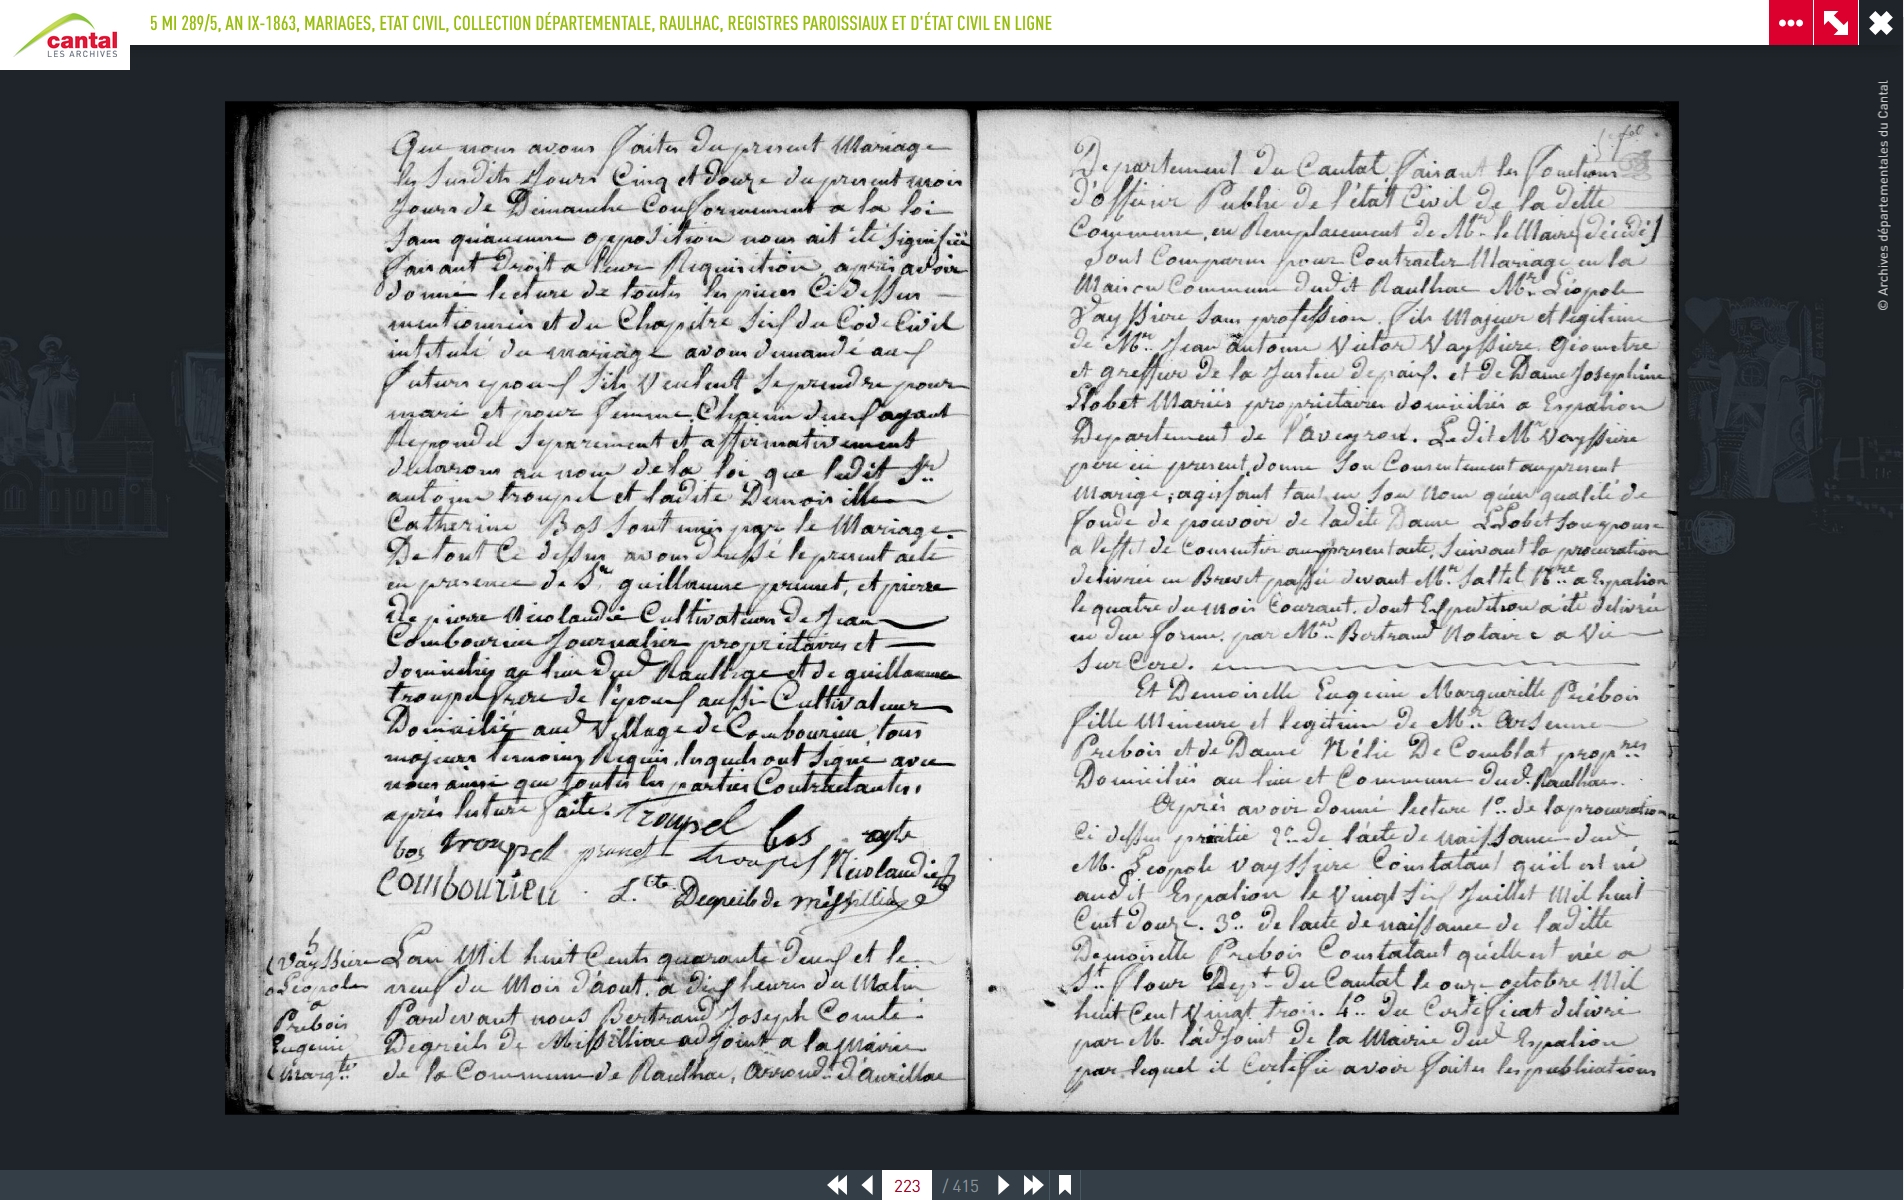 5 MI 289/5, AN IX-1863, MARIAGES, ETAT CIVIL, COLLECTION DÉPARTEMENTALE, RAULHAC, REGISTRES PAROISSIAUX ET D'ÉTAT CIVIL EN LIGNE
cantal
LES ARCHIVES
© Archives départementales du Cantal
Que nous avons faites du present Mariage
les Susdits Jours Cinq et douze du present mois
Jours de Dimanche Conformement a la loi
Sans qu'aucune opposition nous ait été Signifiée
faisant Droit a leur Requisition, après avoir
donné lecture de toutes les pieces Ci dessus
mentionnées et du Chapitre Six du Code Civil
intitulé du mariage avons demandé aux
futurs epoux S'ils Veulent Se prendre pour
mari et pour femme, Chacun d'eux ayant
Repondu Separement et affirmativement
declarons au nom de la loi que ledit Sr
antoine troupel et ladite Demoiselle
Catherine Bos Sont unis par le Mariage.
De tout Ce dessus avons dressé le present acte
en presence de Sr guillaume prunet, et pierre
Nicolaudie Cultivateurs De Jean
Combourieu Journalier proprietaires et
domiciliés au lieu dud Raulhac et de guillaume
troupel frere de l'époux aussi Cultivateur
Domicilié aud Village de Combourieu, tous
majeurs temoins Requis, lesquels ont Signé avec
nous ainsi que toutes les parties Contractantes,
après lecture faite. Troupel bos
bos troupel prunet troupel Nicolaudie
Combourieu Cte Degreils de Méssilliac
5
Vayssiere
Léopole
a
Prébois
Eugenie
Margte
L'an Mil huit Cents quarante Deux et le
neuf du Mois d'aout, a dix heures du Matin
Pardevant nous Bertrand Joseph Comte
Degreils de Missilliac adjoint a la Mairie
de la Commune de Raulhac, Arrond.t d'aurillac
Departement du Cantal faisant les fonctions
d'officier Public de l'état Civil de la ditte
Commune, en Remplacement de Mr le Maire (décédé)
Sont Comparus pour Contracter Mariage en la
Maison Commune dudit Raulhac Mr Léopole
Vayssiere Sans profession, fils Majeur et legitime
de Mr Jean antoine Victor Vayssiere, Géometre
et greffier de la Justice de paix, et de Dame Josephine
Llobet Mariés proprietaires domiciliés a Espalion
Departement de l'aveyron. Ledit Mr Vayssiere
père ici present, donne Son Consentement au present
Mariage; agissant tant en Son Nom qu'en qualité de
fondé de pouvoir de ladite Dame Llobet Son epouse
a l'effet de Consentir au present acte, Suivant la procuration
delivrée en Brevet passée devant Mr Saltel Nre a Espalion
le quatre du mois Courant, dont Expedition a été delivrée
en due forme, par Mr Bertrand Notaire a Vic
Sur Cere.
Et Demoiselle Eugenie Marguerite Prébois
fille Mineure et legitime de Mr Arsenne
Prebois et de Dame Nélie De Comblat propres
Domiciliés au lieu et Commune dud. Raulhac.
Après avoir donné lecture 1° de la procuration
Ci dessus précitée 2° de l'acte de naissance dud
M. Léopole Vayssiere Constatant qu'il est né
audit Espalion le Vingt Six Juillet Mil huit
Cent douze. 3° de l'acte de naissance de laditte
Demoiselle Prebois Constatant qu'elle est née a
St flour Dept Du Cantal le onze octobre Mil
huit Cent Vingt trois. 4° du Certificat delivré
par M. l'adjoint de la Mairie dud Espalion
par lequel il Certifie avoir faites les publications
223
/ 415